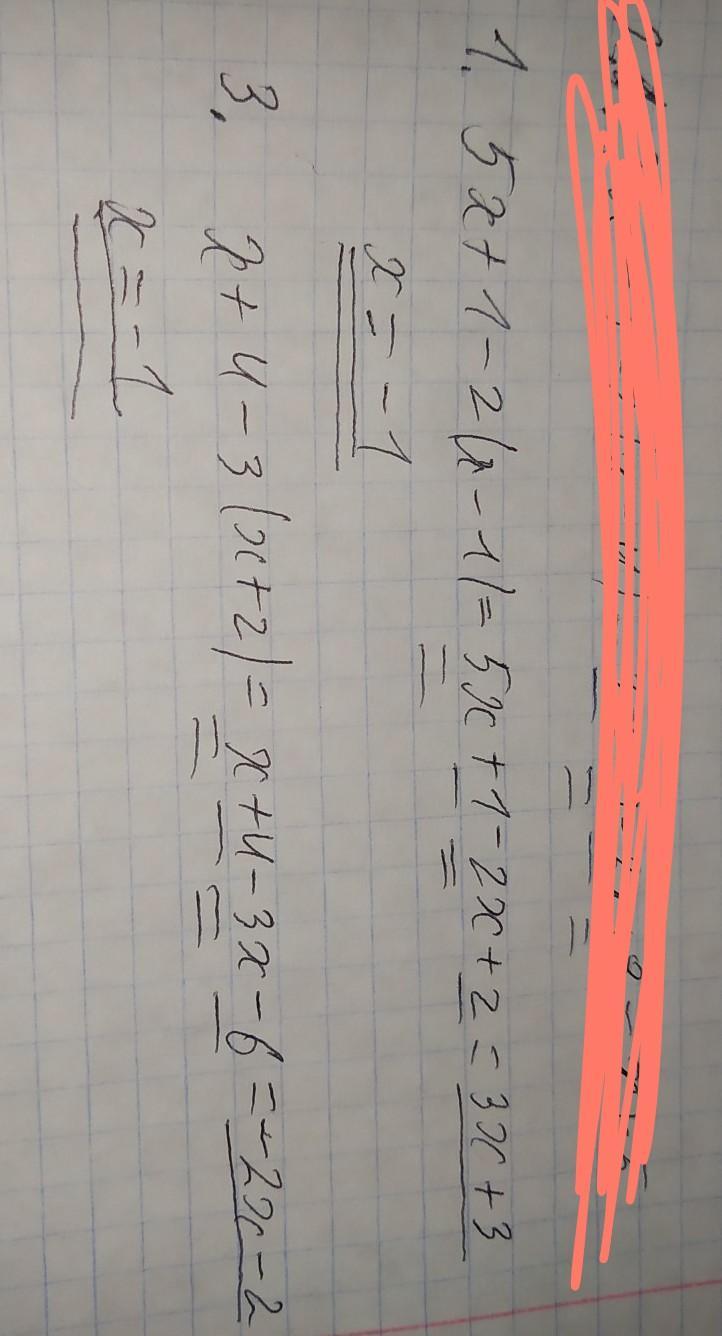 1. 5x+1-2(x-1)=5x+1-2x+2=3x+3
x=-1
3. x+4-3(x+2)=x+4-3x-6=-2x-2
x=-1